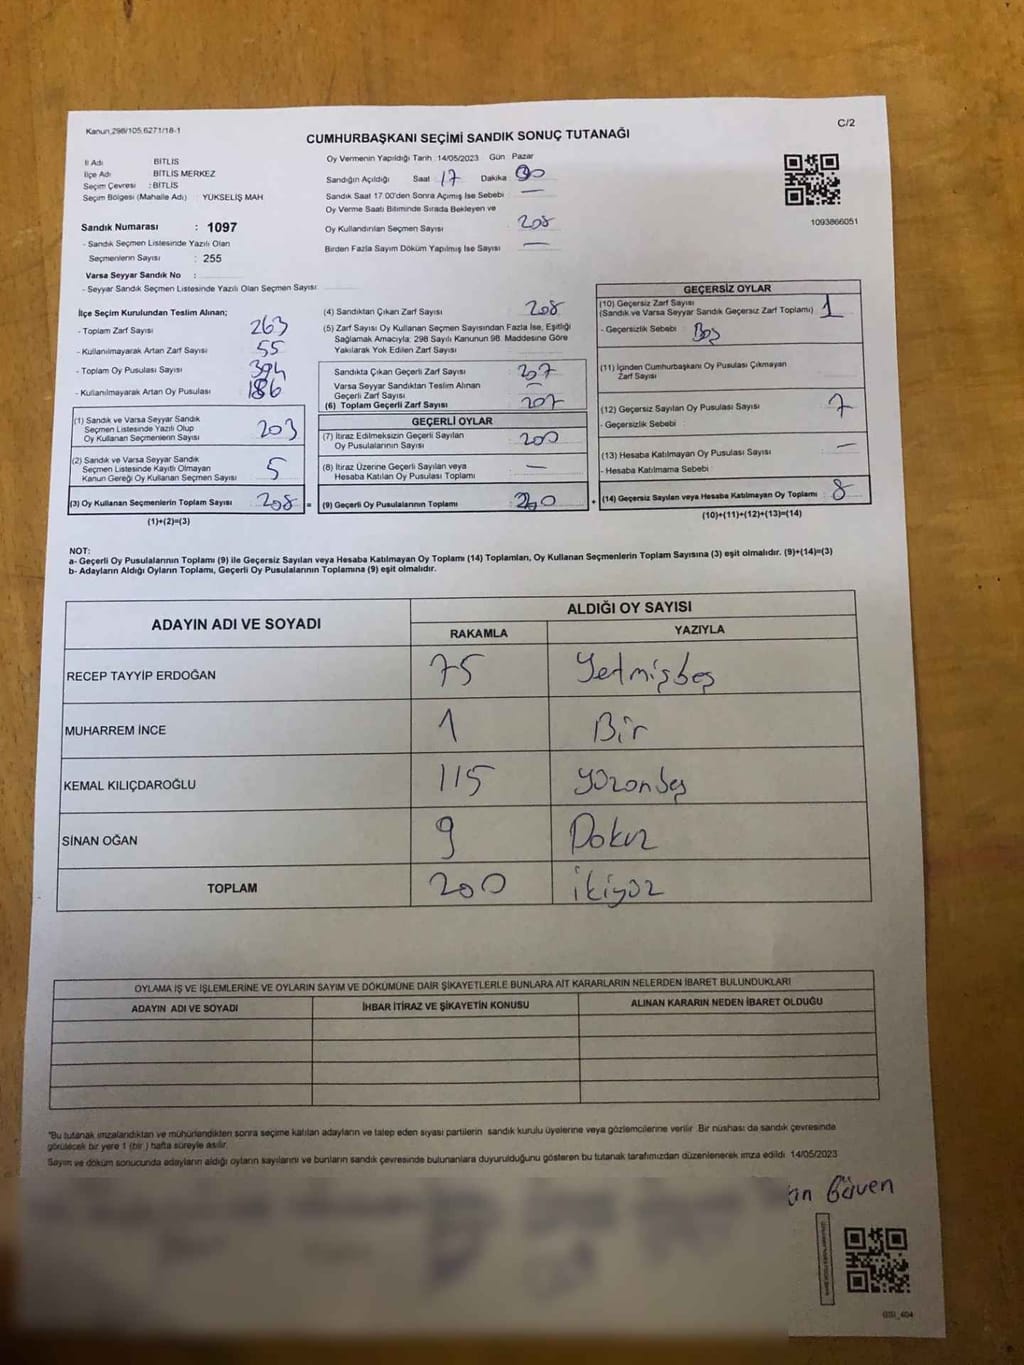 Kanun,298/105,6271/18-1
C/2
CUMHURBAŞKANI SEÇİMİ SANDIK SONUÇ TUTANAĞI
İl Adı BİTLİS
İlçe Adı BİTLİS MERKEZ
Seçim Çevresi : BİTLİS
Seçim Bölgesi (Mahalle Adı) : YÜKSELİŞ MAH
Sandık Numarası : 1097
- Sandık Seçmen Listesinde Yazılı Olan
Seçmenlerin Sayısı : 255
Varsa Seyyar Sandık No :
- Seyyar Sandık Seçmen Listesinde Yazılı Olan Seçmen Sayısı:
Oy Vermenin Yapıldığı Tarih :14/05/2023 Gün Pazar
Sandığın Açıldığı Saat 17 Dakika 00
Sandık Saat 17.00'den Sonra Açımış İse Sebebi —
Oy Verme Saati Bitiminde Sırada Bekleyen ve
Oy Kullandırılan Seçmen Sayısı 208
Birden Fazla Sayım Döküm Yapılmış İse Sayısı —
1093866051
İlçe Seçim Kurulundan Teslim Alınan;
- Toplam Zarf Sayısı 263
- Kullanılmayarak Artan Zarf Sayısı 55
- Toplam Oy Pusulası Sayısı 394
- Kullanılmayarak Artan Oy Pusulası 186
(1) Sandık ve Varsa Seyyar Sandık
Seçmen Listesinde Yazılı Olup
Oy Kullanan Seçmenlerin Sayısı 203
(2) Sandık ve Varsa Seyyar Sandık
Seçmen Listesinde Kayıtlı Olmayan
Kanun Gereği Oy Kullanan Seçmen Sayısı 5
(3) Oy Kullanan Seçmenlerin Toplam Sayısı 208 =
(1)+(2)=(3)
(4) Sandıktan Çıkan Zarf Sayısı 208
(5) Zarf Sayısı Oy Kullanan Seçmen Sayısından Fazla İse, Eşitliği
Sağlamak Amacıyla; 298 Sayılı Kanunun 98. Maddesine Göre
Yakılarak Yok Edilen Zarf Sayısı
Sandıkta Çıkan Geçerli Zarf Sayısı 207
Varsa Seyyar Sandıktan Teslim Alınan
Geçerli Zarf Sayısı —
(6) Toplam Geçerli Zarf Sayısı 207
GEÇERLİ OYLAR
(7) İtiraz Edilmeksizin Geçerli Sayılan
Oy Pusulalarının Sayısı 200
(8) İtiraz Üzerine Geçerli Sayılan veya
Hesaba Katılan Oy Pusulası Toplamı —
(9) Geçerli Oy Pusulalarının Toplamı 200 +
GEÇERSİZ OYLAR
(10) Geçersiz Zarf Sayısı
(Sandık ve Varsa Seyyar Sandık Geçersiz Zarf Toplamı) 1
- Geçersizlik Sebebi Boş
(11) İçinden Cumhurbaşkanı Oy Pusulası Çıkmayan
Zarf Sayısı
(12) Geçersiz Sayılan Oy Pusulası Sayısı 7
- Geçersizlik Sebebi
(13) Hesaba Katılmayan Oy Pusulası Sayısı —
- Hesaba Katılmama Sebebi
(14) Geçersiz Sayılan veya Hesaba Katılmayan Oy Toplamı 8
(10)+(11)+(12)+(13)=(14)
NOT:
a- Geçerli Oy Pusulalarının Toplamı (9) ile Geçersiz Sayılan veya Hesaba Katılmayan Oy Toplamı (14) Toplamları, Oy Kullanan Seçmenlerin Toplam Sayısına (3) eşit olmalıdır. (9)+(14)=(3)
b- Adayların Aldığı Oyların Toplamı, Geçerli Oy Pusulalarının Toplamına (9) eşit olmalıdır.
ADAYIN ADI VE SOYADI ALDIĞI OY SAYISI
RAKAMLA YAZIYLA
RECEP TAYYİP ERDOĞAN 75 Yetmişbeş
MUHARREM İNCE 1 Bir
KEMAL KILIÇDAROĞLU 115 yüzonbeş
SİNAN OĞAN 9 Dokuz
TOPLAM 200 ikiyüz
OYLAMA İŞ VE İŞLEMLERİNE VE OYLARIN SAYIM VE DÖKÜMÜNE DAİR ŞİKAYETLERLE BUNLARA AİT KARARLARIN NELERDEN İBARET BULUNDUKLARI
ADAYIN ADI VE SOYADI İHBAR İTİRAZ VE ŞİKAYETİN KONUSU ALINAN KARARIN NEDEN İBARET OLDUĞU
"Bu tutanak imzalandıktan ve mühürlendikten sonra seçime katılan adayların ve talep eden siyasi partilerin sandık kurulu üyelerine veya gözlemcilerine verilir .Bir nüshası da sandık çevresinde
görülecek bir yere 1 (bir ) hafta süreyle asılır.
Sayım ve döküm sonucunda adayların aldığı oyların sayılarını ve bunların sandık çevresinde bulunanlara duyurulduğunu gösteren bu tutanak tarafımızdan düzenlenerek imza edildi. 14/05/2023
an Güven